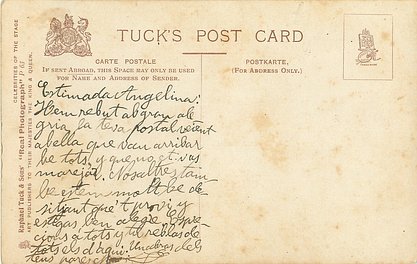 TUCK'S POST CARD
CARTE POSTALE
IF SENT ABROAD, THIS SPACE MAY ONLY BE USED
FOR NAME AND ADDRESS OF SENDER.
POSTKARTE.
(FOR ADDRESS ONLY.)
CELEBRITIES OF THE STAGE
Raphael Tuck & Sons' "Real Photograph" P 65
ART PUBLISHERS TO THEIR MAJESTIES THE KING & QUEEN.
Estimada Angelina:
Hem rebut ab gran ale
gria, la teva postal veient
abella que van arribar
be tots, y que no et vas
marejar. Nosaltres tam
be estem molt be de
sitjant que t
estigas ben alegre. Espre
cions a tots y
tots els d'aqui. Un abras dels
teus